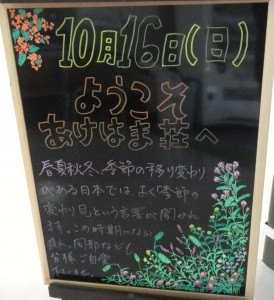 10月16日(日)
ようこそ
あけはま荘へ
春夏秋冬、季節の移り変わり
がある日本では よく季節の
変わり目という言葉が聞かれ
ます。この時期になると
皆様ご自愛
下さいませ。